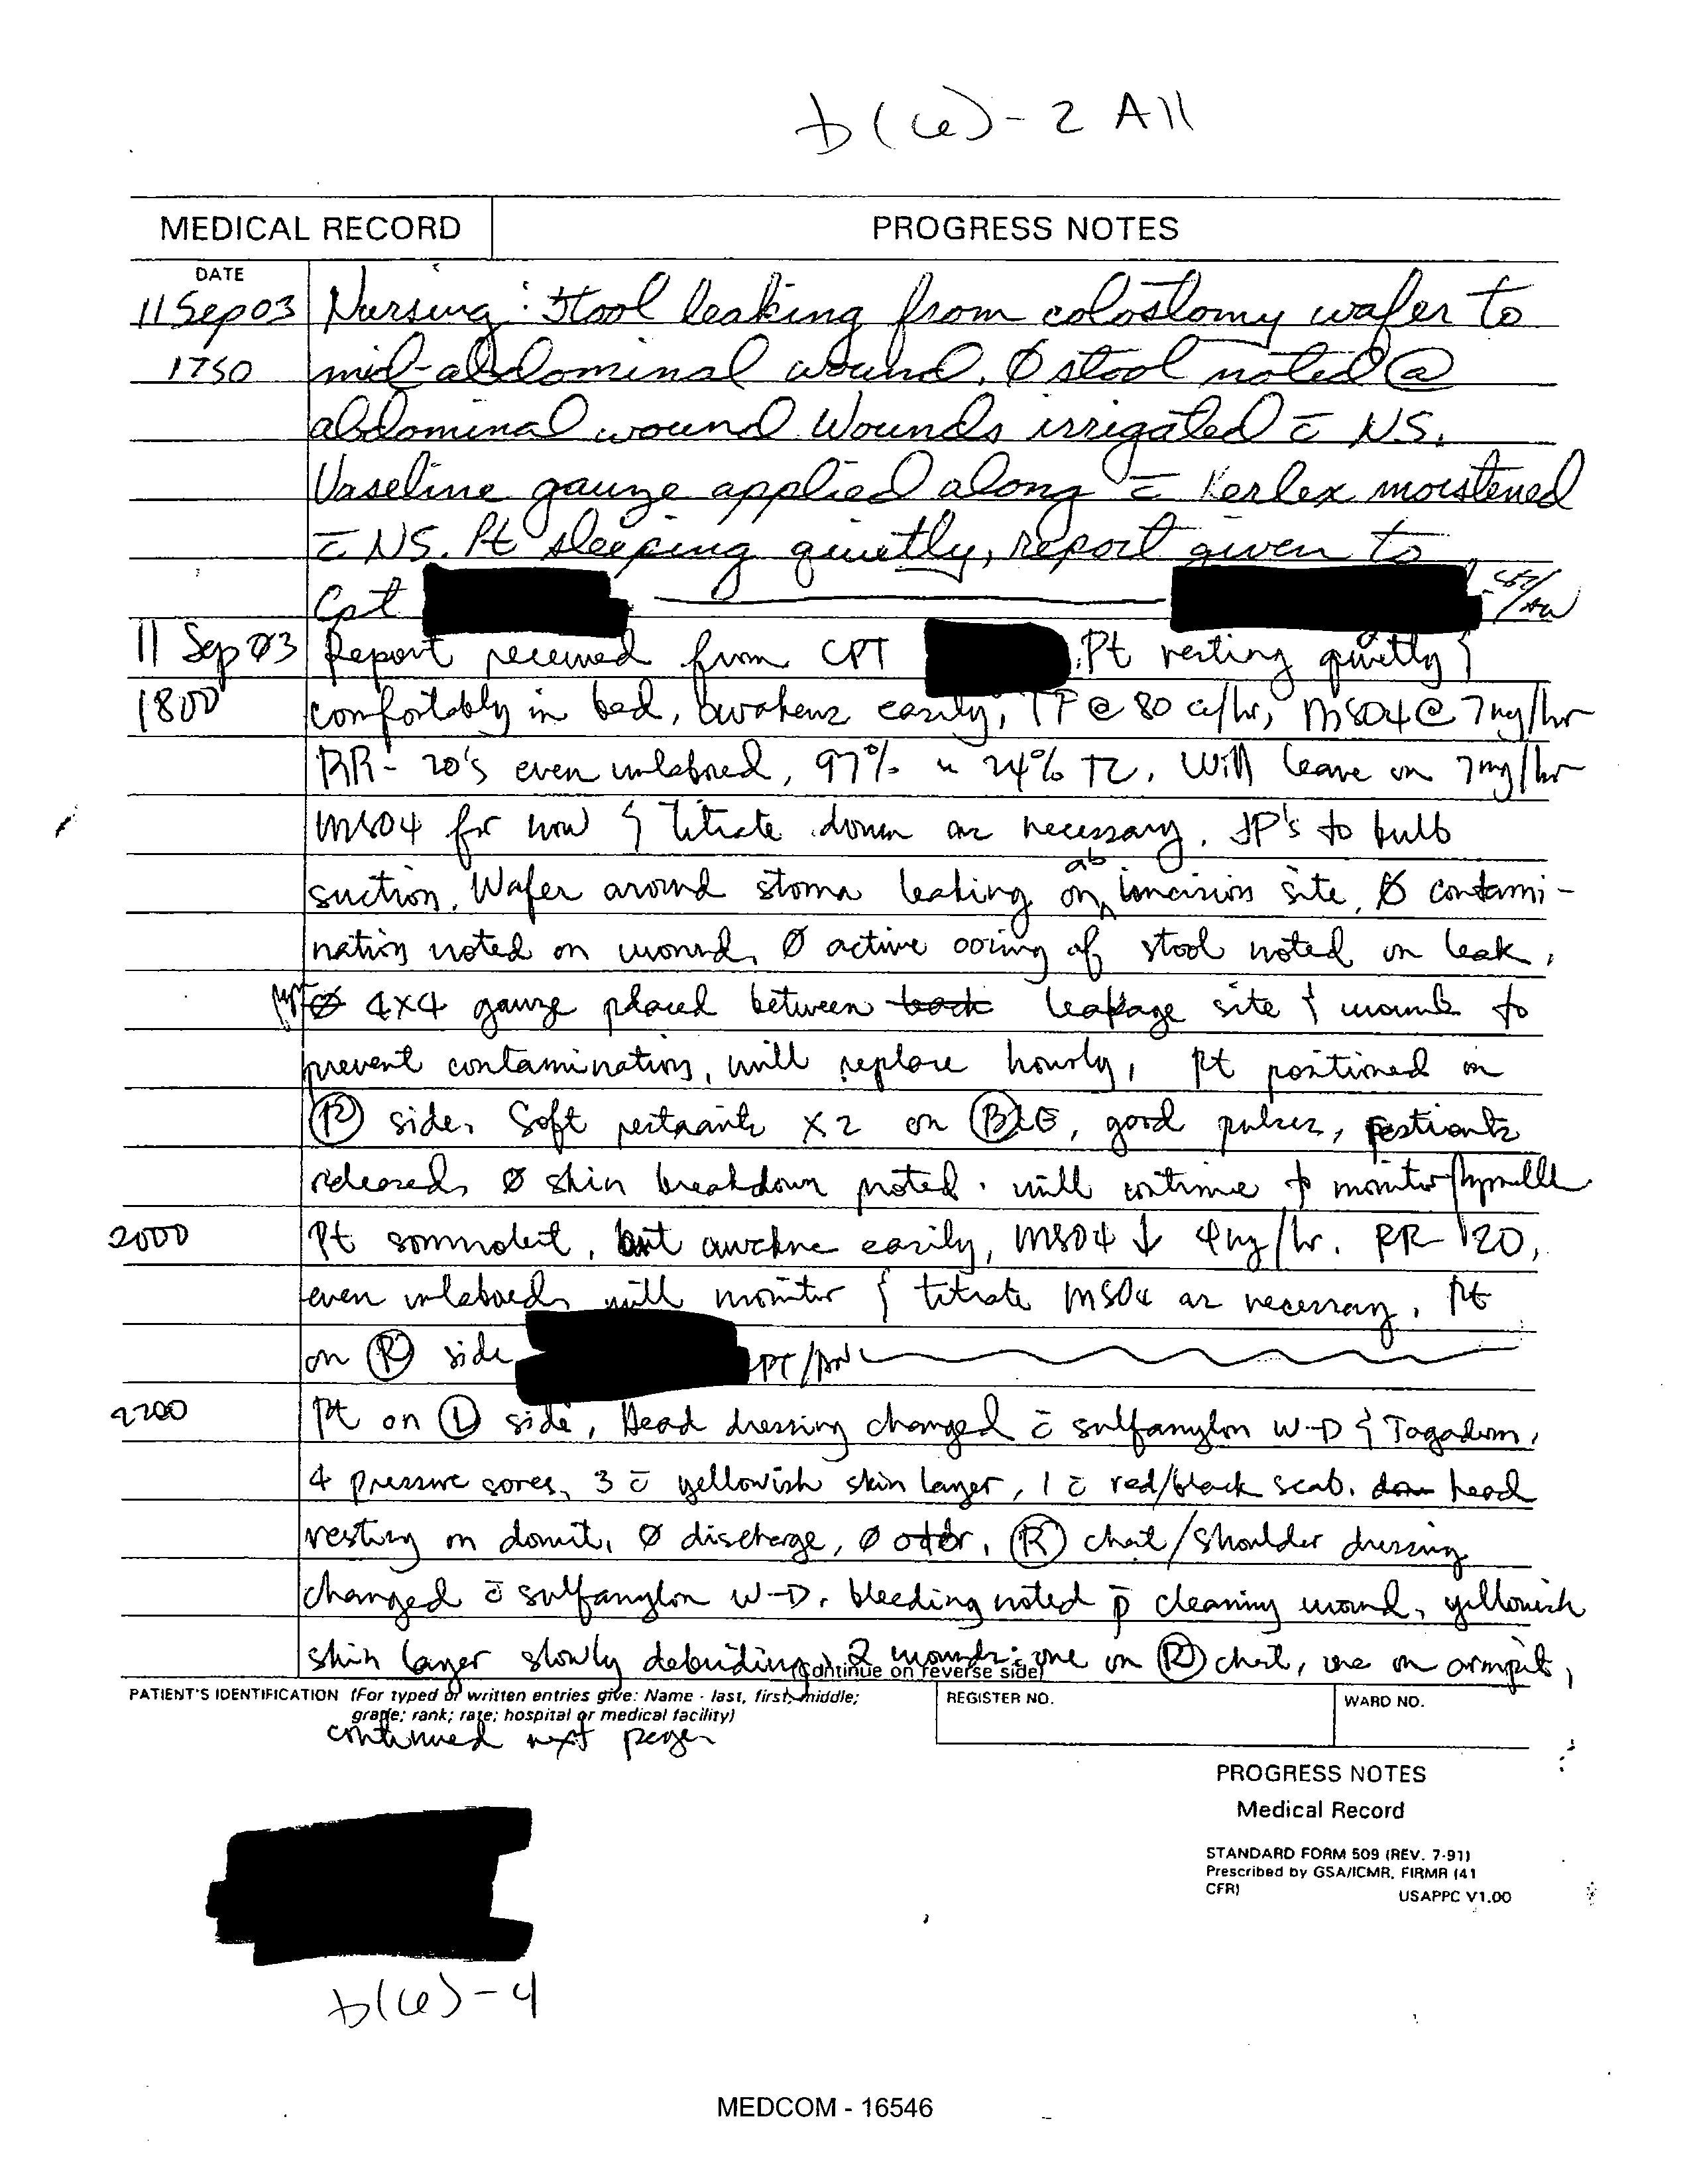 b(6)-2 All
MEDICAL RECORD
PROGRESS NOTES
DATE
11 Sep 03 Nursing: Stool leaking from colostomy wafer to
1750 mid-abdominal wound. Ø stool noted @
abdominal wound Wounds irrigated c̄ NS.
Vaseline gauze applied along c̄ Kerlex moistened
c̄ NS. Pt sleeping quietly, report given to
Cpt
11 Sep 03 Report received from CPT . Pt resting quietly &
1800 comfortably in bed, awakens easily, TF @ 80 cc/hr, MSO4 @ 7mg/hr
RR- 20's even unlabored, 97% on 24% TC. Will leave on 7mg/hr
MSO4 for now & titrate down as necessary. JP's to bulb
suction. Wafer around stoma leaking on ab incision site, Ø contami-
nation noted on wound, Ø active oozing of stool noted on leak,
4x4 gauze placed between leakage site & wound to
prevent contamination, will replace hourly, Pt positioned on
(R) side. Soft restraints x2 on , good pulses, restraints
released, Ø skin breakdown noted. will continue to monitor
2000 Pt somnolent, but awakens easily, MSO4 ↓ 4mg/hr. RR 20,
even unlabored, will monitor & titrate MSO4 as necessary. Pt
on (R) side
2200 Pt on (L) side, Head dressing changed c̄ sulfamylon W-D & Tagaderm,
4 pressure sores, 3 c̄ yellowish skin layer, 1 c̄ red/black scab. head
resting on donut, Ø discharge, Ø odor, (R) chest/shoulder dressing
changed c̄ sulfamylon W-D. bleeding noted p̄ cleaning wound, yellowish
skin layer slowly debriding, 2 wounds: one on (R) chest, one on armpit,
(Continue on reverse side)
PATIENT'S IDENTIFICATION (For typed or written entries give: Name - last, first, middle;
grade; rank; rate; hospital or medical facility)
REGISTER NO.
WARD NO.
continued next page
PROGRESS NOTES
Medical Record
STANDARD FORM 509 (REV. 7-91)
Prescribed by GSA/ICMR, FIRMR (41
CFR)
USAPPC V1.00
b(6)-4
MEDCOM - 16546